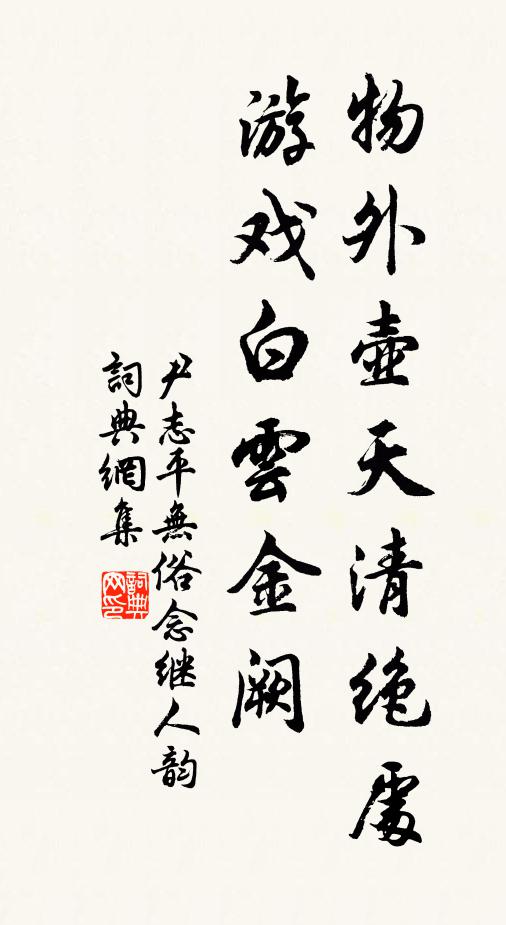 物外壺天清绝處
游戏白雲金阙
尹志平無俗念继人韵
詞典網集
詞典网印